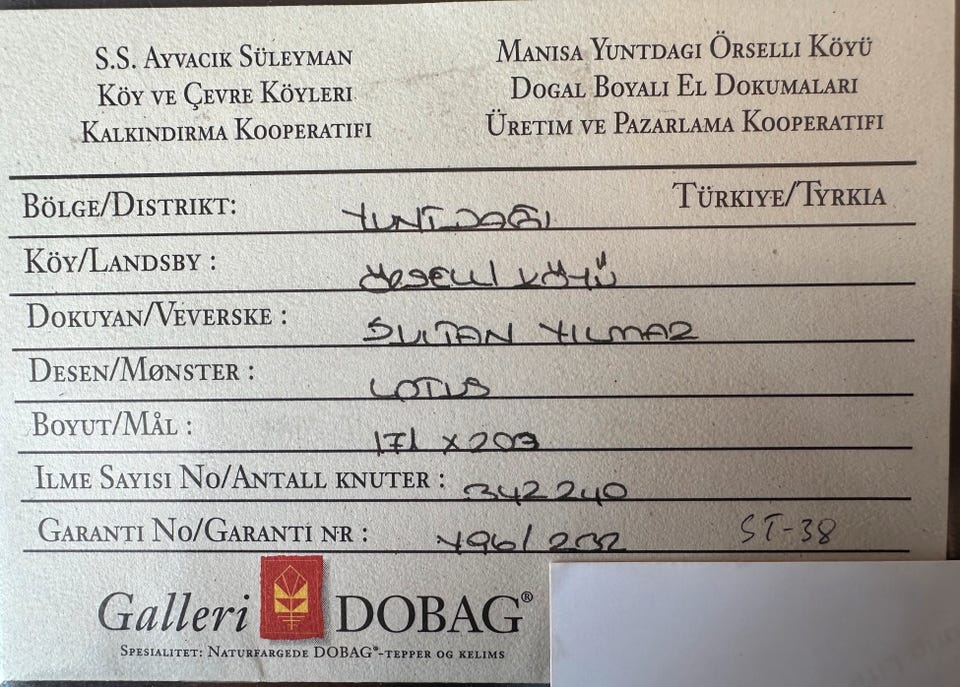 S.S. Ayvacık Süleyman
Köy ve Çevre Köyleri
Kalkındırma Kooperatifi
Manisa Yuntdagi Örselli Köyü
Dogal Boyali El Dokumalari
Üretim ve Pazarlama Kooperatifi
Bölge/Distrikt: YUNTDAĞI Türkiye/Tyrkia
Köy/Landsby : ÖRSELLİ KÖYÜ
Dokuyan/Veverske : SULTAN YILMAZ
Desen/Mønster : LOTUS
Boyut/Mål : 171 x 203
Ilme Sayisi No/Antall knuter : 342240
Garanti No/Garanti nr : Y96/232 ST-38
Galleri DOBAG®
Spesialitet: Naturfargede DOBAG®-tepper og kelims